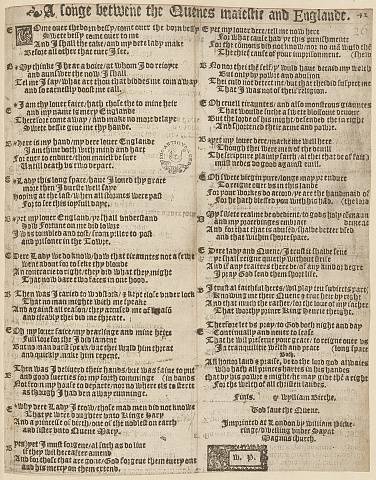 A songe betwene the Quenes maiestie and Englande.
E
Come ouer the born bessy / come ouer the born bessy
Swete bessy come ouer to me
And I shall the take / and my dere lady make
Before all other that euer I see.
B
My thinke I hear a voice / at whom I do reioyce
and aunswer the now I shall
Tel me I say / what art thou that biddes me com away
and so earnestly doost me call.
E
I am thy louer faire / hath chose the to mine heir
and my name is mery Englande
Therefore come away / and make no more delaye
Swete bessie giue me thy hande.
B
Here is my hand / my dere louer Englande
I am thine both with mind and hart
For euer to endure / thou maiest be sure
Untill death vs two depart.
E
Lady this long space / haue I loued thy grace
more then I durste well saye
Hoping at the last / when all stormes were past
For to see this ioyfull daye.
B
Yet my louer England / ye shall vnderstand
How Fortune on me did lowre
I was tombled and tost / from piller to post
and prisoner in the Towre.
E
Dere Lady we do knowe / how that tirauntes not a fewe
went about for to seke thy bloude
And contrarie to right / they did what they might
That now bare two faces in one hood.
B
Then was I caried to wodstock / and kept close vnder lock
That no man mighte with me speake
And against all reason / they accused me of treason
and tirably they did me threate.
E
Oh my louer faire / my dearlinge and mine heire
Full sore for the I did lament
But no man durst speak / but thei wuld him threat
and quickly make him repent.
B
Then was I deliuered their hands / but was faine to put
and good suerties for my forth comminge (in bands
Not from my house to departe / nor no where els to sterte
as though I had ben away runninge.
E
Why dere Lady I trow / those mad men did not knowe
That ye were doughter vnto Kinge Hary
And a princesse of birth / one of the noblest on earth
and sister vnto Quene Mary.
B
Yes / yet I must forgeue / al such as do liue
if they will hereafter amend
And for those that are gone / God forgeue them euery one
and his mercy on them extend.
E
Yet my louer dere / tell me now here
For what cause had ye this punishment
For the commons did not know / nor no man wuld the shew
The chief cause of your imprisonment.
B
No nor thei them self / they wuld haue decaid my welth
But only by power and abusion
Thei culd not detect me / but that they did suspect me
That I was not of their religion.
E
Oh cruell tirauntes / and also monstrous giauntes
That woulde suche a swete blossome deuour
But the lorde of his might / defended the in right
And shortened their arme and power.
B
Yet my louer dere / marke me well here
Though they were men of the deuill
The scripture plainly saith / al thei that be of faith
must nedes do good against euill.
E
Oh swete virgin pure / longe may ye endure
To reigne ouer vs in this lande
For your workes do accord / ye are the handmaid of
For he hath blessed you with his hand. (the lord
B
My swete realme be obedient / to gods holy commaundement
and my proceedinges embrace
And for that that is abused / shalbe better vsed
and that within shorte space.
E
Dere lady and Quene / I trust it shalbe sene
ye shall reigne quietly without strife
And if any traiters there be / of any kinde or degree
I pray God send them short life.
B
I trust al faithful herts / wil play tru subiects parts
Knowing me their Quene & true heir by right
And that much the rather / for the loue of my father
That worthy prince King Henrie theight.
E
Therfore let vs pray to God both night and day
Continually and neuer to cease
That he will preserue your grace / to reigne ouer vs
In tranquilitie welth and peace (long space
Both.
All honor laud & praise, be to the lord god alwaies
who hath all princes hartes in his handes
that by his power & might / he may gide them aright
For the welth of all christen landes.
Finis. q Wylliam Birche.
God saue the Quene.
Imprinted at London by William Pickeringe / dwelling vnder Saynt
Magnus church.
W. P.